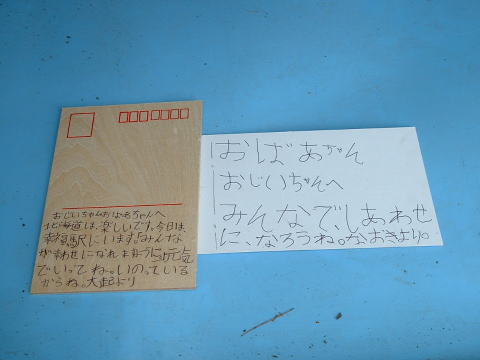 おじいちゃんおばあちゃんへ
北海道は、楽しいです。今日は
幸福駅にいます。みんな
が幸せになれますように。元気
でいってね。いのっている
からね。大起より
おばあちゃん
おじいちゃんへ
みんなで、しあわせ
に、なろうね。なおきより。